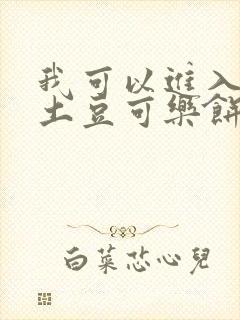 我可以進入
土豆可樂餅
白菜芯心兒